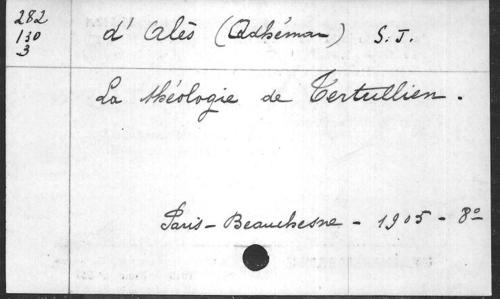 282
130
3
d'Alès (Adhémar) S. J.
La théologie de Tertullien.
Paris - Beauchesne - 1905 - 8º